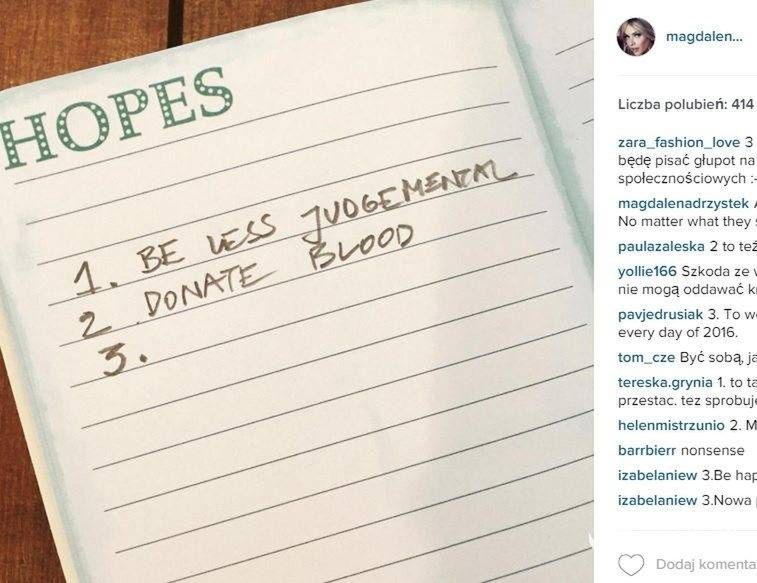 HOPES
1. BE LESS JUDGEMENTAL
2. DONATE BLOOD
3.
magdalen...
Liczba polubień: 414
zara_fashion_love 3
będę pisać głupot na
społecznościowych :-
magdalenadrzystek
No matter what they
paulazaleska 2 to też
yollie166 Szkoda ze
nie mogą oddawać
pavjedrusiak 3. To
every day of 2016.
tom_cze Być sobą,
tereska.grynia 1. to
przestac. tez sprobuje
helenmistrzunio 2.
barrbierr nonsense
izabelaniew 3.Be
izabelaniew 3.Nowa
Dodaj komenta